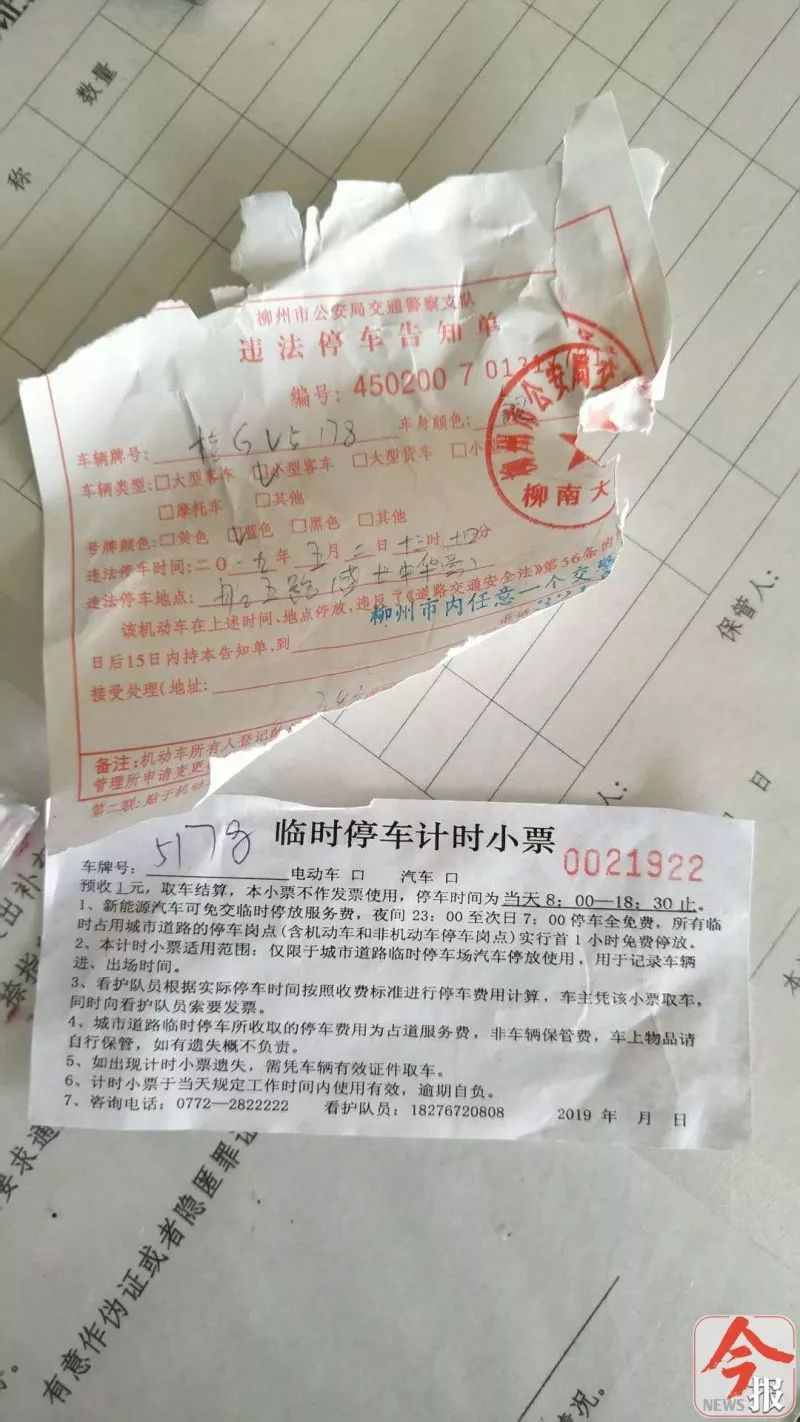 数量
称
柳州市公安局交通警察支队
违法停车告知单
编号: 450200 7
柳州市公安局交
柳南大
车辆牌号: 桂GV5178 车身颜色:
车辆类型:□大型客车 □小型客车 □大型货车 □小
□摩托车 □其他
号牌颜色:□黄色 □蓝色 □黑色 □其他
违法停车时间:二0一九年五月二日十三时十四分
违法停车地点:
该机动车在上述时间、地点停放,违反了《道路交通安全法》第56条的
柳州市内任意一个交警
日后15日内持本告知单,到
接受处理(地址:
备注:机动车所有人登记的
管理所申请变更
第二联:贴于机动
保管人:
人:
日
临时停车计时小票
0021922
车牌号: 5178 电动车 口 汽车 口
预收1元,取车结算,本小票不作发票使用,停车时间为当天8:00—18:30止。
1、新能源汽车可免交临时停放服务费,夜间23:00至次日7:00停车全免费,所有临
时占用城市道路的停车岗点(含机动车和非机动车停车岗点)实行首1小时免费停放。
2、本计时小票适用范围:仅限于城市道路临时停车场汽车停放使用,用于记录车辆
进、出场时间。
3、看护队员根据实际停车时间按照收费标准进行停车费用计算,车主凭该小票取车,
同时向看护队员索要发票。
4、城市道路临时停车所收取的停车费用为占道服务费,非车辆保管费,车上物品请
自行保管,如有遗失概不负责。
5、如出现计时小票遗失,需凭车辆有效证件取车。
6、计时小票于当天规定工作时间内使用有效,逾期自负。
7、咨询电话:0772—2822222 看护队员:18276720808 2019 年 月 日
出补
要求通
有意作伪证或者隐匿罪证
情况。
今报
NEWS